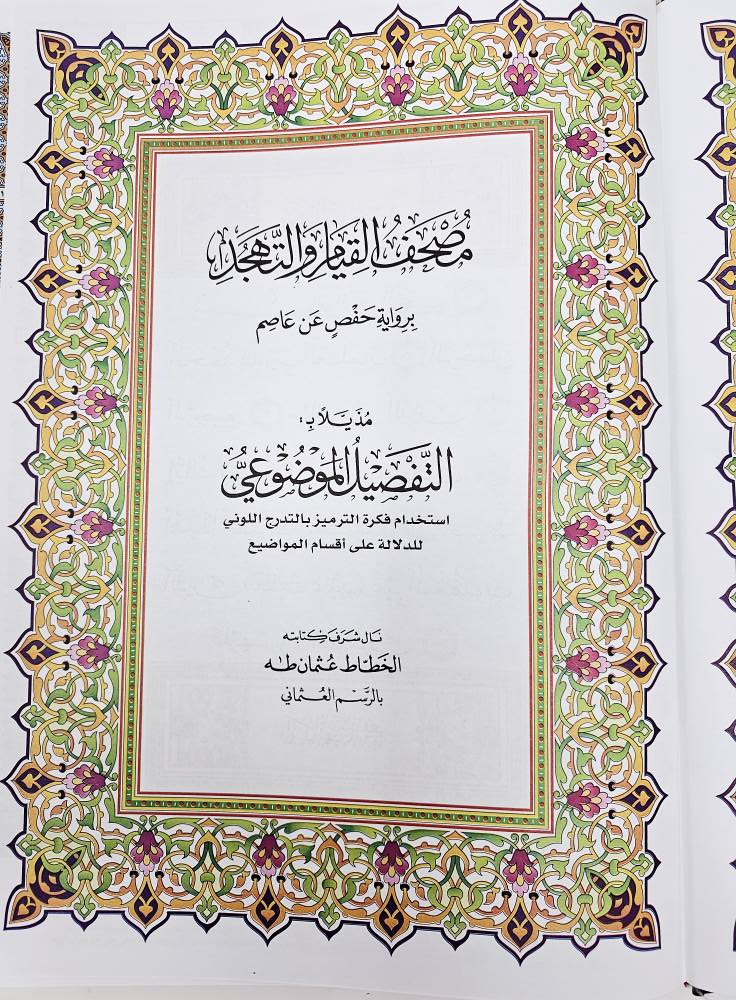 مُصْحَفُ القِيَامِ وَالتَّهَجُّدِ
بِرِوَايَةِ حَفْصٍ عَن عَاصِم
مُذَيَّلاً بِـ:
التَّفْصِيْلُ المَوْضُوْعِيُّ
استخدام فكرة الترميز بالتدرج اللوني
للدلالة على أقسام المواضيع
نَال شَرَفَ كِتَابته
الخطّاط عُثمان طٰه
بالرَّسْم العُثماني